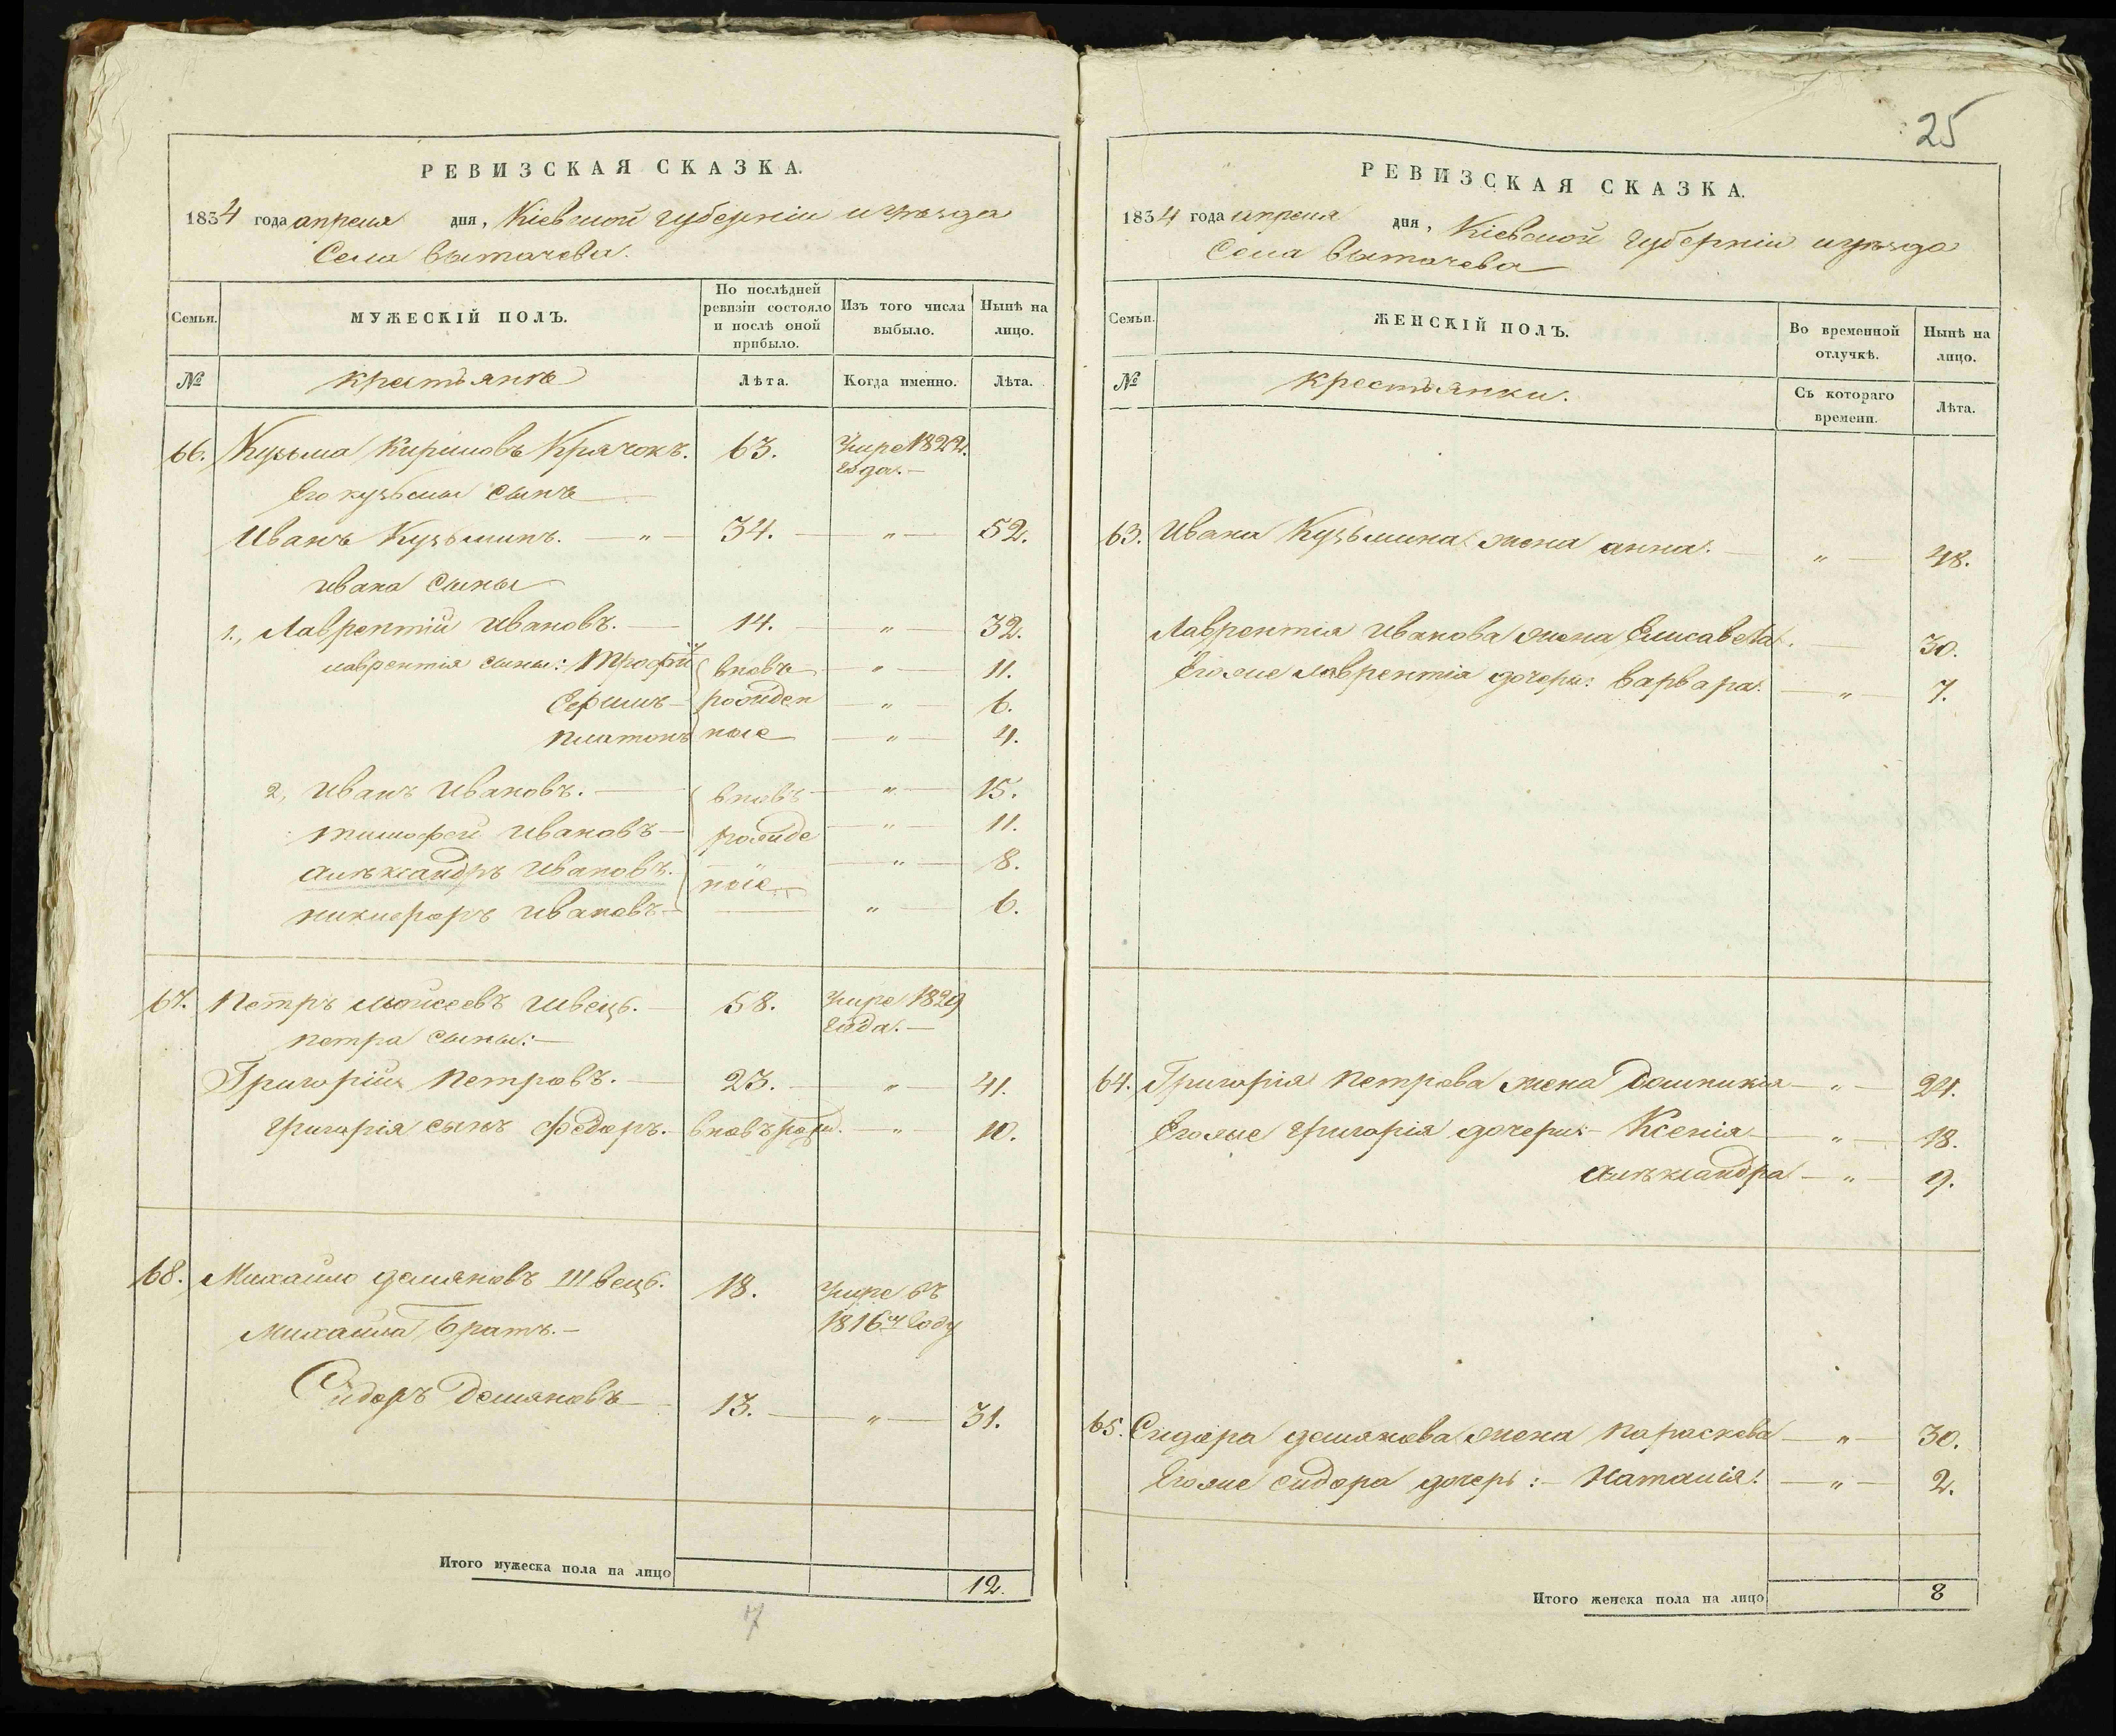 РЕВИЗСКАЯ СКАЗКА.
1834 года апреля дня, Кіевской губерніи и уѣзда
Села Вытачева.
Семьи.
МУЖЕСКІЙ ПОЛЪ.
По послѣдней ревизіи состояло и послѣ оной прибыло.
Изъ того числа выбыло.
Нынѣ на лицо.
№
крестьяне
Лѣта.
Когда именно.
Лѣта.
66. Кузьма Кириловъ Крячокъ. 63. Умре 1822.
года.
Его кузьмы сынъ
Иванъ Кузьминъ. — " — 34. — " — 52.
ивана сыны
1., Лаврентій Ивановъ. — 14. — " — 32.
лаврентія сыны: Трофій вновь — " — 11.
Ефимъ рожден — " — 6.
платонъ ные — " — 4.
2, Иванъ Ивановъ. — вновь — " — 15.
тимофей Ивановъ — рожде — " — 11.
Алѣксандръ Ивановъ. — " — 8.
ные
никифоръ Ивановъ — " — 6.
67. Петръ мойсеевъ швець. — 58. Умре 1829
года. —
петра сыны: —
Григорій Петровъ. — 23. — " — 41.
григорія сынъ Федоръ. — вновь рожд. — " — 10.
68. Михайло демяновъ Швець. 18. Умре въ
1816м году
Михайла братъ. —
Сидоръ Демяновъ — 13. — " — 31.
Итого мужеска пола на лицо 12.
7
25
РЕВИЗСКАЯ СКАЗКА.
1834 года апреля дня, Кіевской губерніи и уѣзда
Села Вытачева
Семьи.
ЖЕНСКІЙ ПОЛЪ.
Во временной отлучкѣ.
Нынѣ на лицо.
№
крестьянки.
Съ котораго времени.
Лѣта.
63. Ивана Кузьмина жена анна. — " — 48.
Лаврентія Иванова жена Елисавета. — 30.
Егоже лаврентія дочери: варвара. — " — 7.
64. Григорія Петрова жена Домникія — " — 24.
Егоже григорія дочери: — Ксенія — " — 18.
Алѣксандра — " — 9.
65. Сидора демянова жена параскева — " — 30.
Егоже сидора дочерь: — Наталія. — " — 2.
Итого женска пола на лицо 8